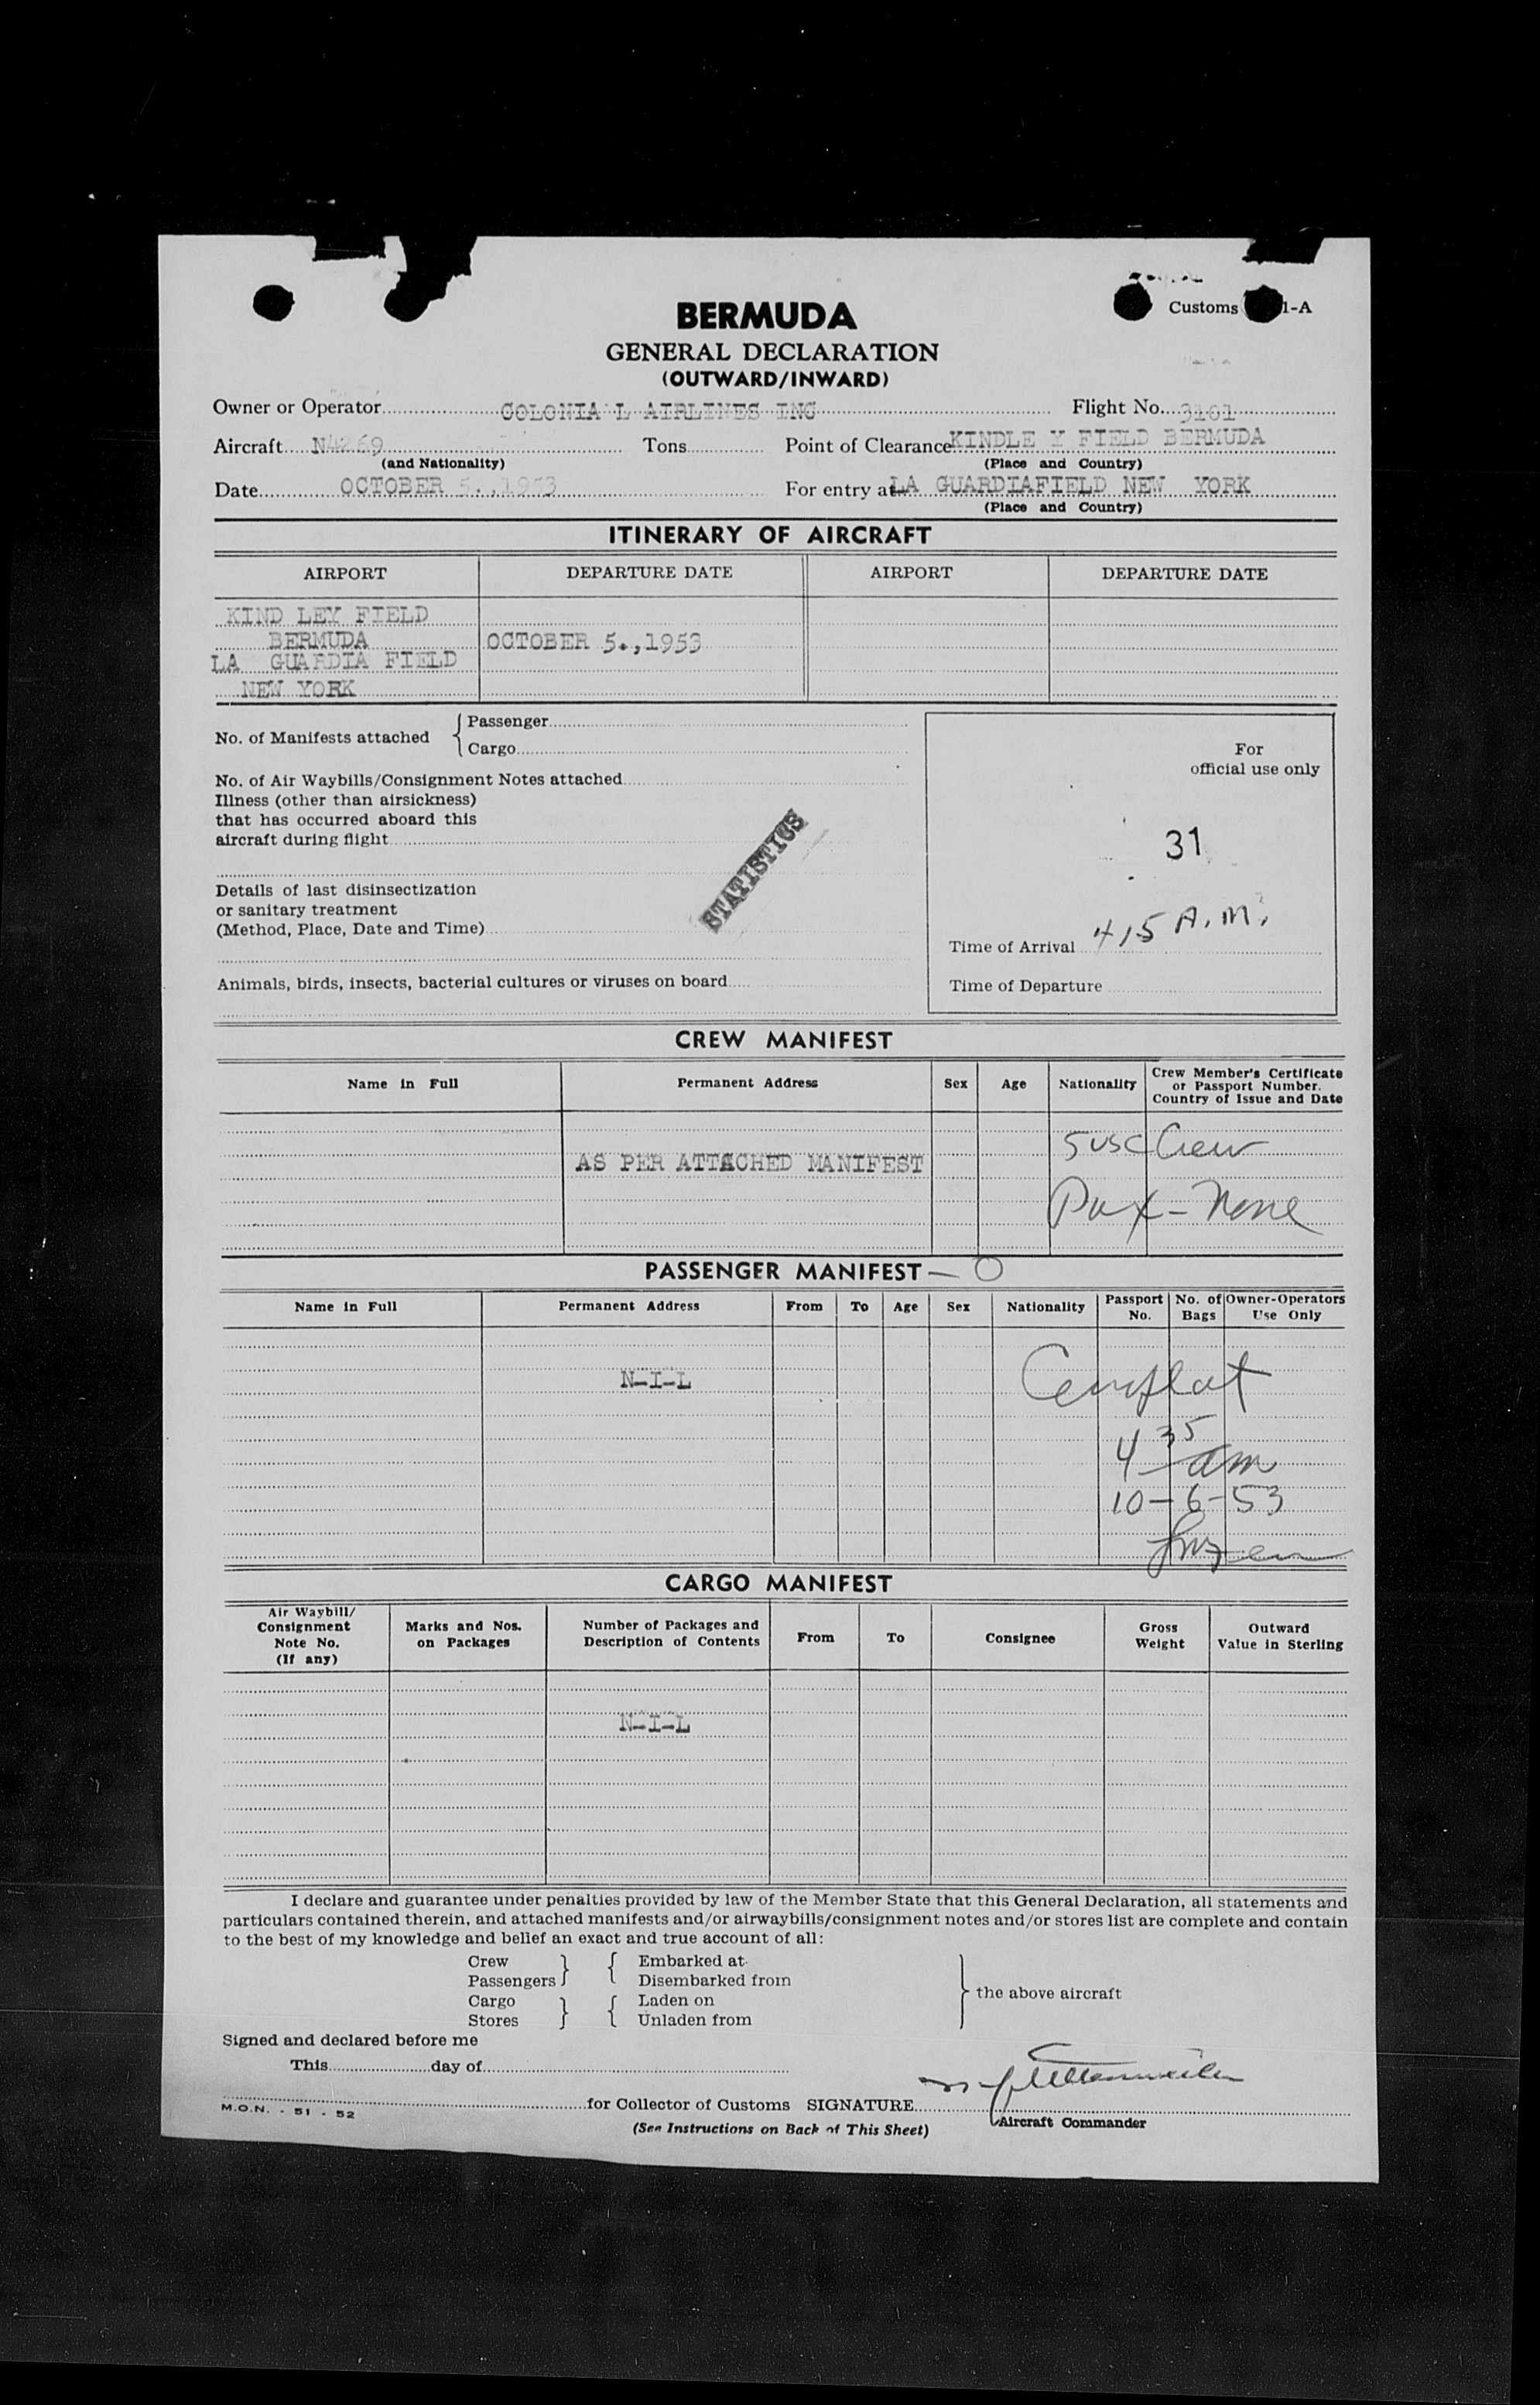 BERMUDA
Customs 1-A
GENERAL DECLARATION
(OUTWARD/INWARD)
Owner or Operator COLONIA L AIRLINES INC Flight No. 3101
Aircraft N4269 Tons Point of Clearance KINDLE Y FIELD BERMUDA
(and Nationality) (Place and Country)
Date OCTOBER 5.,1953 For entry at LA GUARDIAFIELD NEW YORK
(Place and Country)
ITINERARY OF AIRCRAFT
AIRPORT DEPARTURE DATE AIRPORT DEPARTURE DATE
KIND LEY FIELD
BERMUDA OCTOBER 5.,1953
LA GUARDIA FIELD
NEW YORK
No. of Manifests attached { Passenger
Cargo
For
official use only
No. of Air Waybills/Consignment Notes attached
Illness (other than airsickness)
that has occurred aboard this
aircraft during flight
STATISTICS
31
Details of last disinsectization
or sanitary treatment
(Method, Place, Date and Time)
Time of Arrival 415 A.M.
Animals, birds, insects, bacterial cultures or viruses on board
Time of Departure
CREW MANIFEST
Name in Full Permanent Address Sex Age Nationality Crew Member's Certificate
or Passport Number.
Country of Issue and Date
5 USC Crew
AS PER ATTACHED MANIFEST
Pax - None
PASSENGER MANIFEST — O
Name in Full Permanent Address From To Age Sex Nationality Passport No. No. of Bags Owner-Operators Use Only
N-I-L
4 35 am
10-6-53
CARGO MANIFEST
Air Waybill/
Consignment
Note No.
(If any)
Marks and Nos.
on Packages
Number of Packages and
Description of Contents
From To Consignee
Gross
Weight
Outward
Value in Sterling
N-I-L
I declare and guarantee under penalties provided by law of the Member State that this General Declaration, all statements and
particulars contained therein, and attached manifests and/or airwaybills/consignment notes and/or stores list are complete and contain
to the best of my knowledge and belief an exact and true account of all:
Crew } { Embarked at
Passengers Disembarked from
} the above aircraft
Cargo } { Laden on
Stores Unladen from
Signed and declared before me
This day of
for Collector of Customs SIGNATURE
M.O.N. - 51 - 52
Aircraft Commander
(See Instructions on Back of This Sheet)